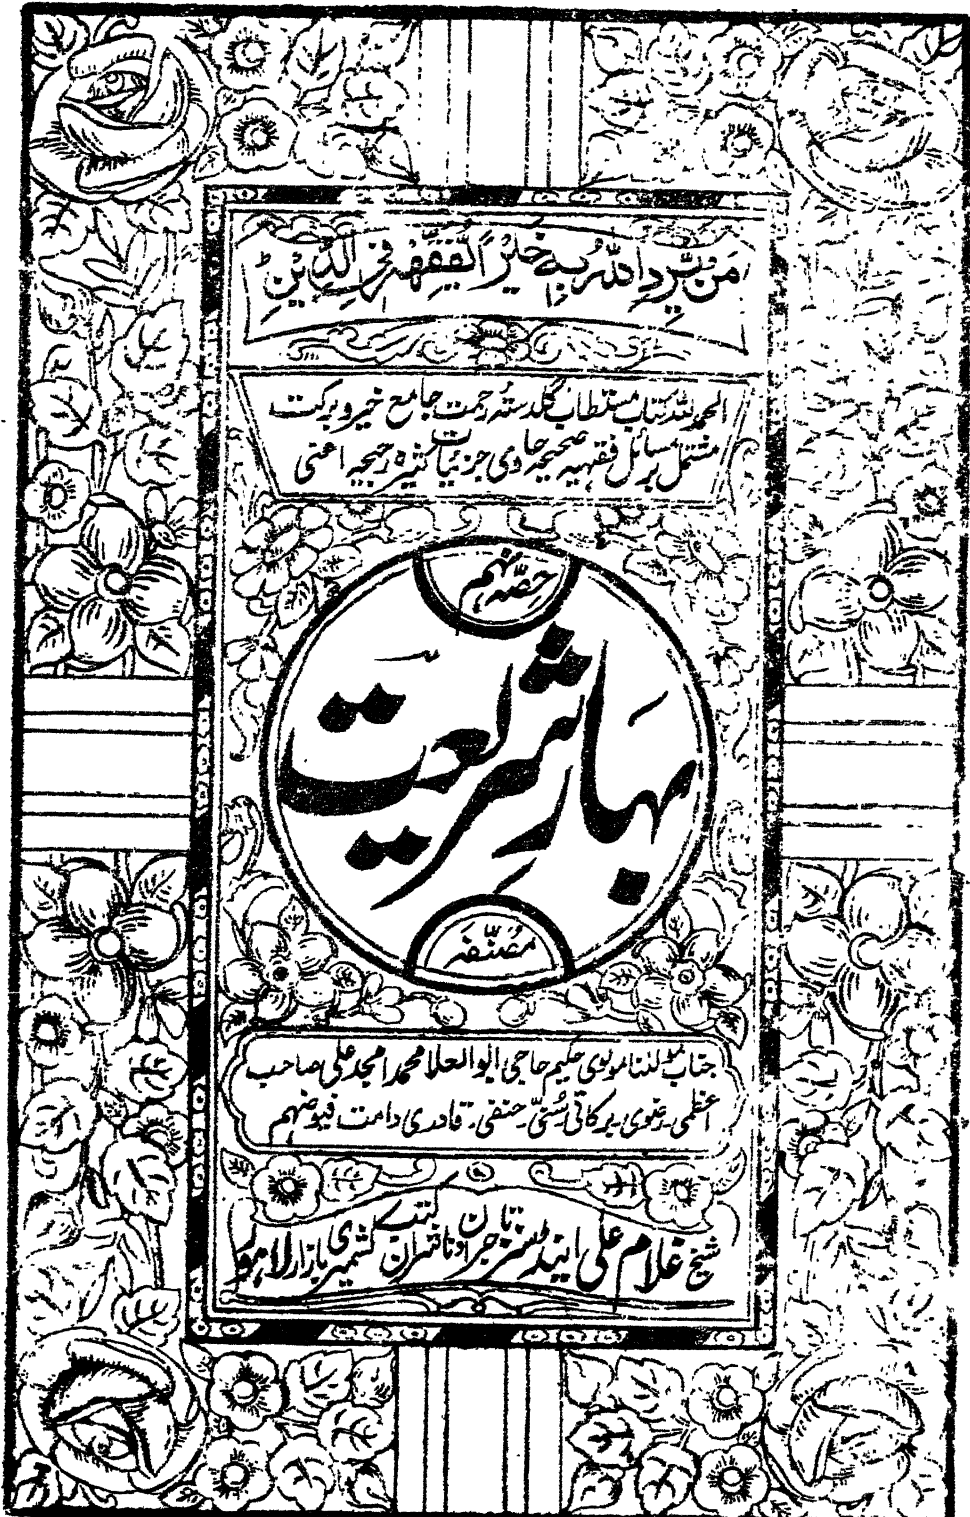 مَنْ یُّرِدِ اللّٰہُ بِہٖ خَیْرًا یُّفَقِّھْہُ فِی الدِّیْنِ ط
الحمد للہ کتاب مستطاب گلدستہ رحمت جامع خیر و برکت
مشتمل بر مسائل فقہیہ صحیحہ حاوی جزئیات کثیرہ رجیحہ اعنی
حصّہ نہم
بہار شریعت
مُصنّفہ
جناب مولٰنا مولوی حکیم حاجی ابوالعلا محمد امجد علی صاحب
اعظمی۔ رضوی۔ برکاتی۔ سُنّی۔ حنفی۔ قادری دامت فیوضہم
شیخ غلام علی اینڈ سنز تاجران و ناشران کتب کشمیری بازار لاہور